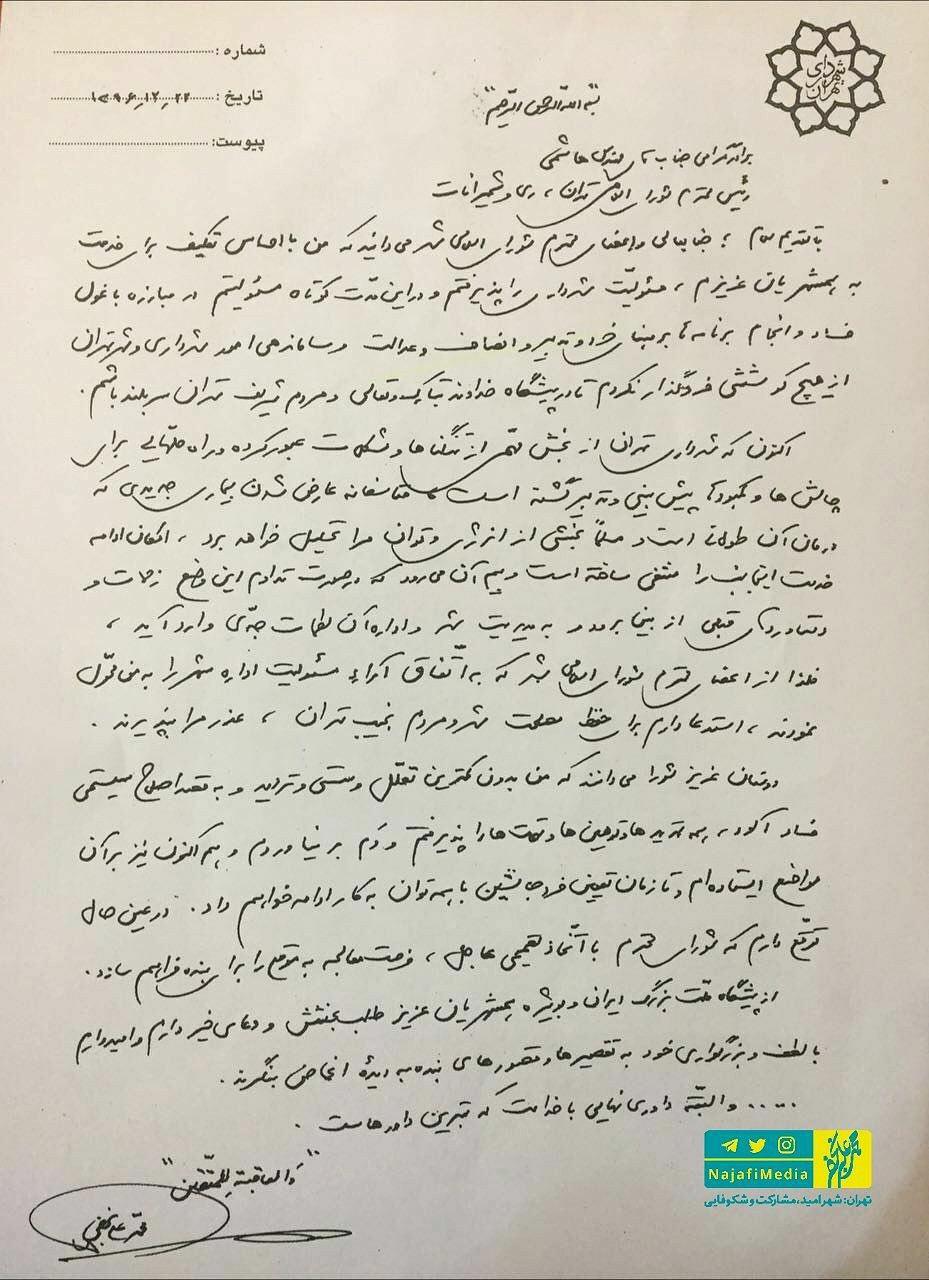 شهرداری تهران
شماره :
تاریخ : ۱۳۹۶.۱۲.۲۲
پیوست:
"بسم الله الرحمن الرحیم"
برادر گرامی جناب آقای مهندس هاشمی
رئیس محترم شورای اسلامی تهران، ری و شمیرانات
با تقدیم سلام ؛ جنابعالی و اعضای محترم شورای اسلامی شهر می‌دانید که من با احساس تکلیف برای خدمت
به همشهریان عزیزم ، مسئولیّت شهرداری را پذیرفتم و در این مدت کوتاه مسئولیتم در مبارزه با غول
فساد و انجام برنامه‌ها بر مبنای خرد و تدبیر و انصاف و عدالت و ساماندهی امور شهرداری و شهر تهران
از هیچ کوششی فروگذار نکردم تا در پیشگاه خداوند تبارک و تعالی و مردم شریف تهران سربلند باشم .
اکنون که شهرداری تهران از بخش مهمّی از تنگناها و مشکلات عبور کرده و راه حلهایی برای
چالش ها و کمبودها پیش بینی و تدبیر گشته است ، متأسفانه عارض شدن بیماری جدیدی که
درمان آن طولانی است و مسلماً بخشی از انرژی و توان مرا تحلیل خواهد برد ، امکان ادامه
خدمت اینجانب را منتفی ساخته است و بیم آن می‌رود که در صورت تداوم این وضع زحمات و
دستاوردهای قبلی از بین برود و به مدیریت شهر و اداره آن لطمات جدّی وارد آید ،
فلذا از اعضای محترم شورای اسلامی شهر که به اتّفاق آراء مسئولیت اداره شهر را به من محوّل
نمودند ، استدعا دارم برای حفظ مصلحت شهر و مردم نجیب تهران ، عذر مرا بپذیرند .
دوستان عزیز شورا می‌دانند که من بدون کمترین تعلّل و سستی و تردید و به قصد اصلاح سیستمی
فساد آلود ، همه تهدیدها و توهین ها و تهمت ها را پذیرفتم و دَم بر نیاوردم و هم اکنون نیز بر آن
مواضع ایستاده‌ام و تا زمان تعیین فرد جانشین با همه توان به کار ادامه خواهم داد . در عین حال
توقّع دارم که شورای محترم با اتّخاذ تصمیمی عاجل ، فرصت معالجه به موقع را برای بنده فراهم سازد.
از پیشگاه ملّت بزرگ ایران و بویژه همشهریان عزیز طلب بخشش و دعای خیر دارم و امیدوارم
با لطف و بزرگواری خود به تقصیرها و قصورهای بنده به دیدهٔ اغماض بنگرند .
..... و البتّه داوری نهایی با خداست که بهترین داورهاست .
"والعاقبة للمتّقین"
محمّد علی نجفی
NajafiMedia
تهران: شهر امید، مشارکت و شکوفایی